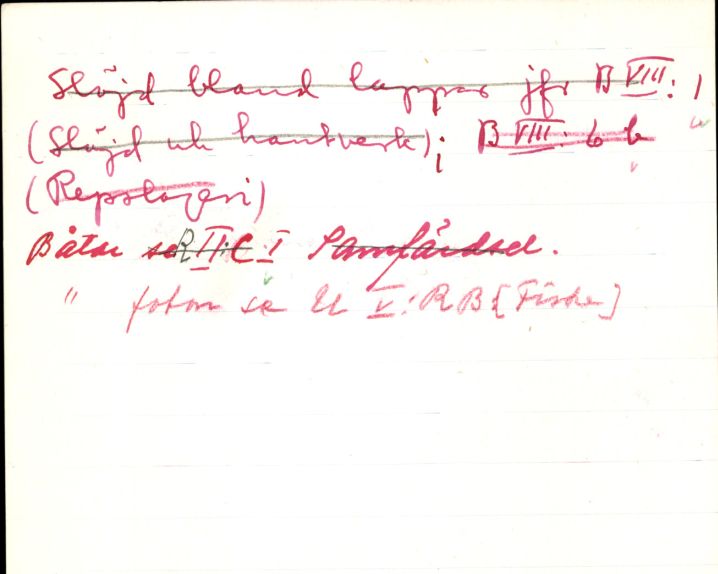 Slöjd bland lappar jfr B VIII: 1
(Slöjd och hantverk); B VIII: 6 b
(Repslageri)
Båtar se R II: C: I Samfärdsel.
" foton se U V: R B [Fiske]